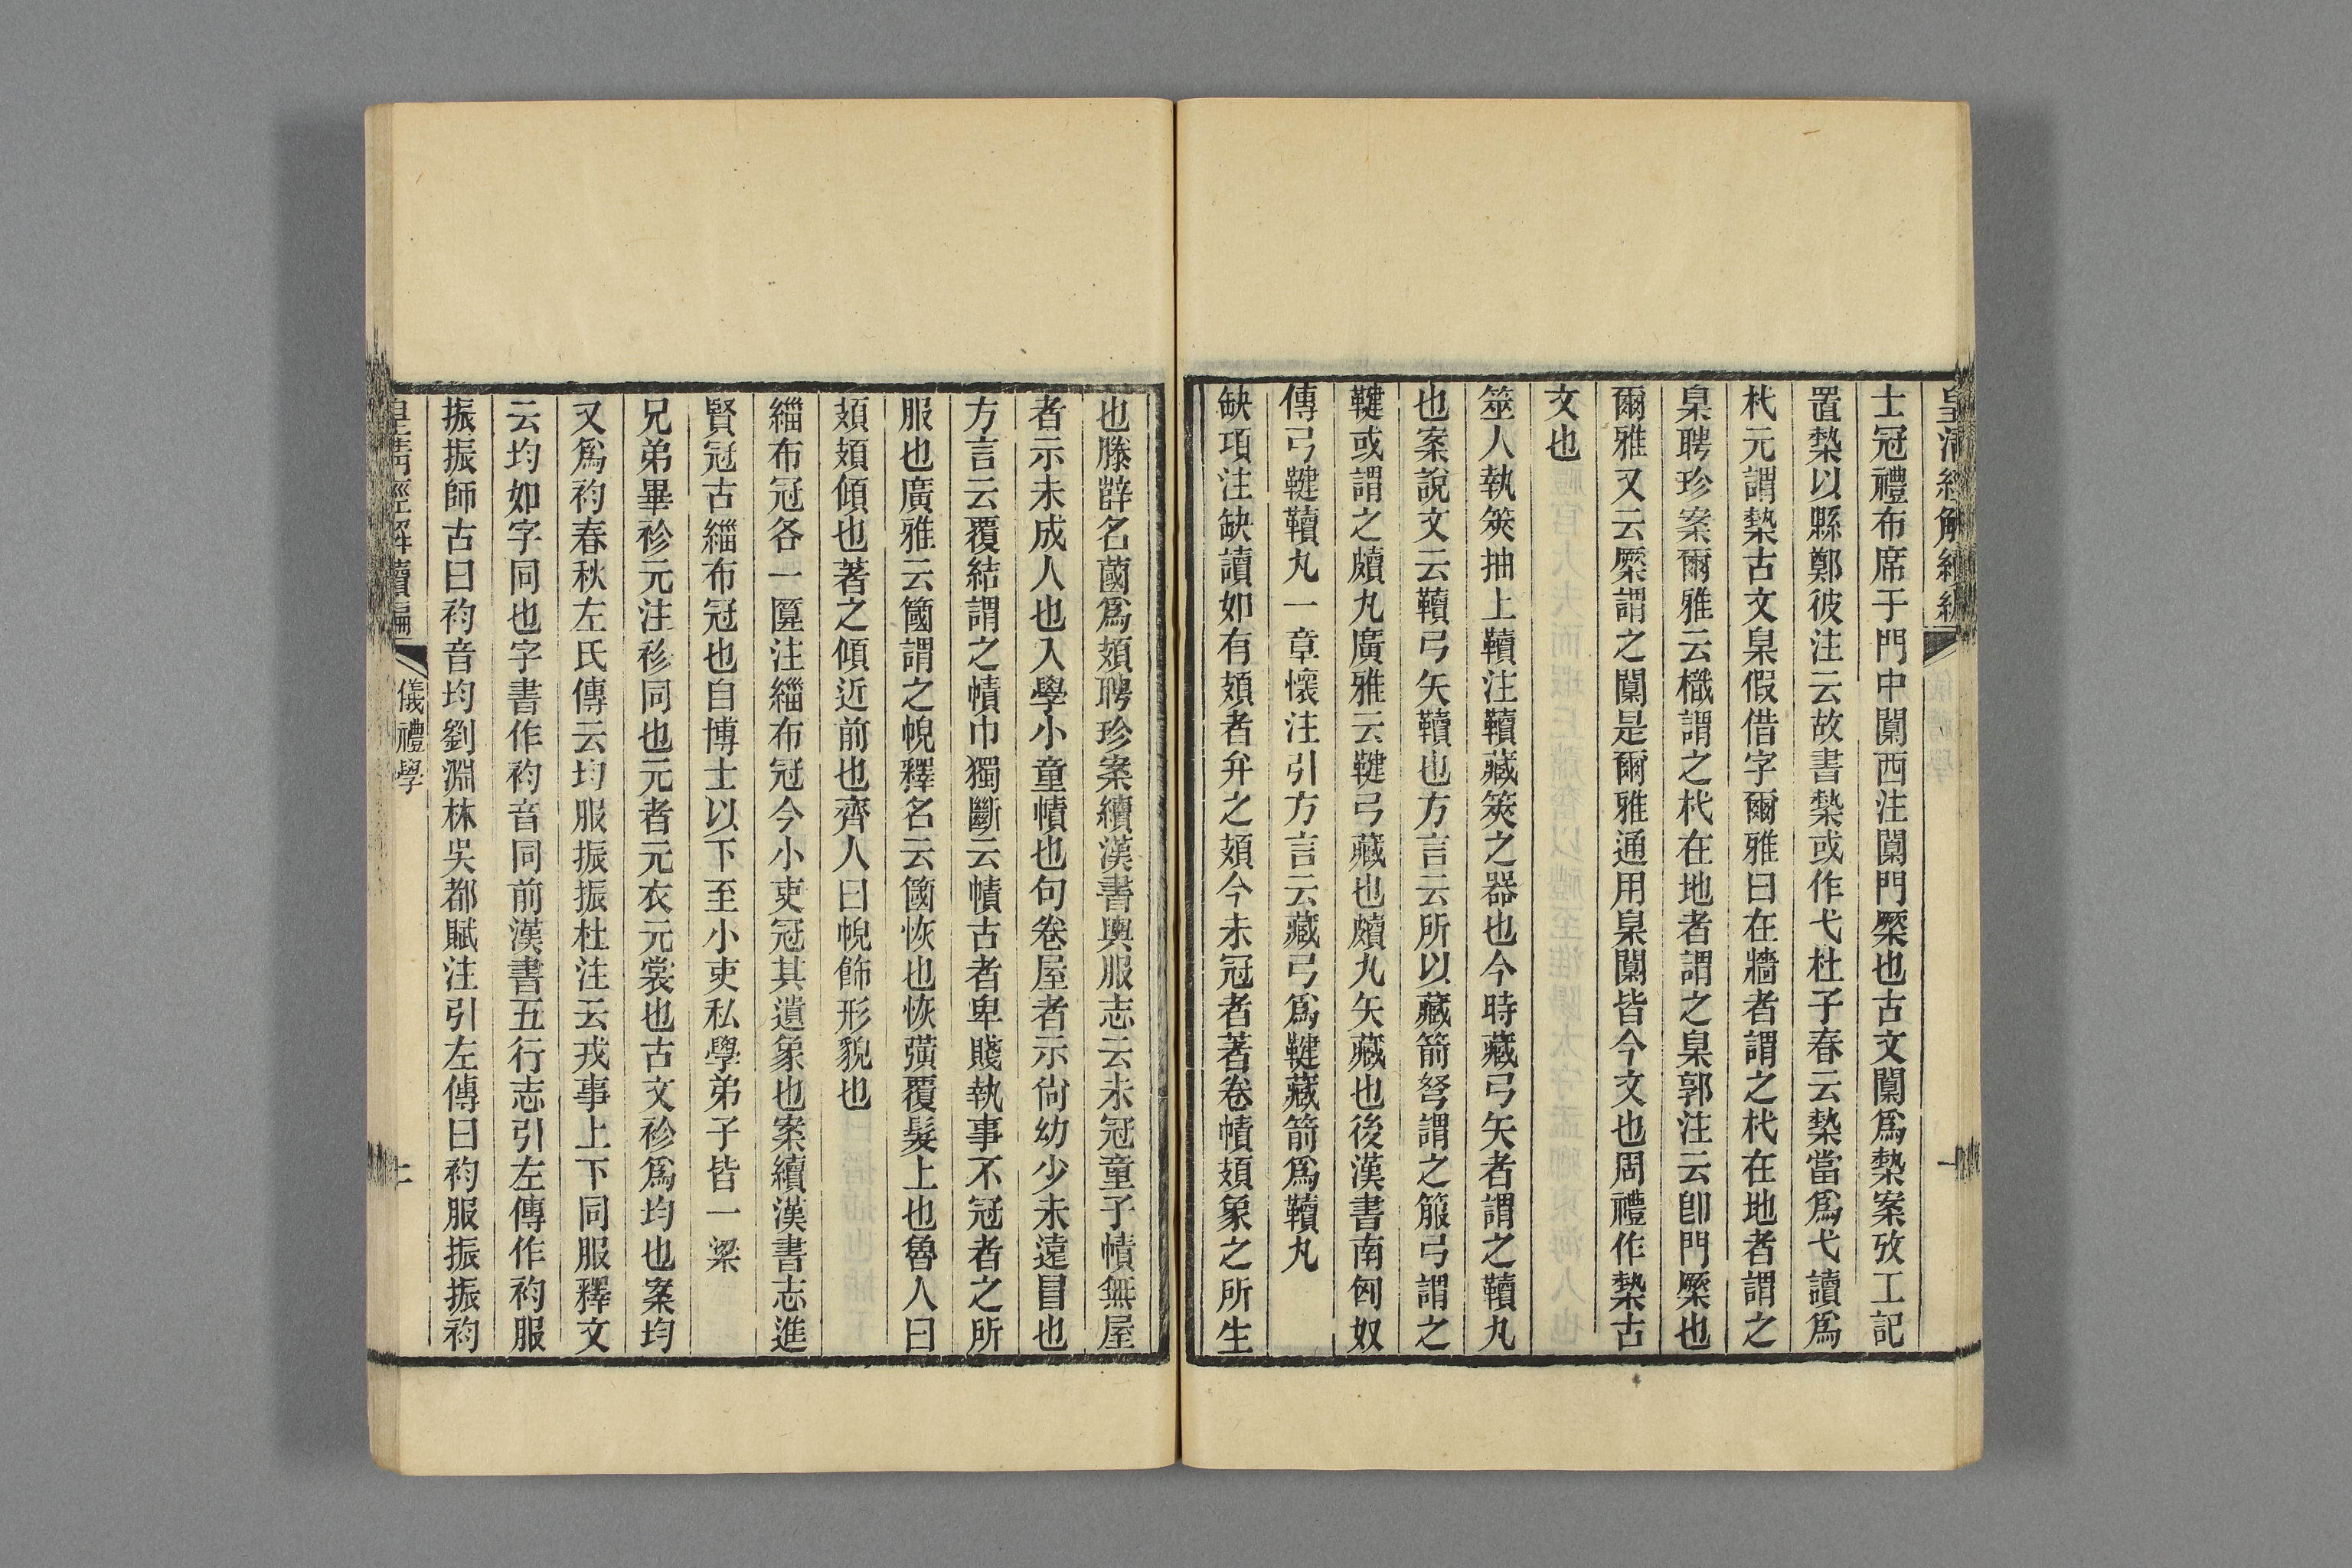 士冠禮布席于門中闑西注闑門橜也古文闑爲槷案攷工記
置槷以縣鄭彼注云故書槷或作弋杜子春云槷當爲弋讀爲
杙元謂槷古文臬假借字爾雅曰在牆者謂之杙在地者謂之
臬聘珍案爾雅云樴謂之杙在地者謂之臬郭注云卽門橜也
爾雅又云橜謂之闑是爾雅通用臬闑皆今文也周禮作槷古
文也
筮人執筴抽上韇注韇藏筴之器也今時藏弓矢者謂之韇丸
也案說文云韇弓矢韇也方言云所以藏箭弩謂之箙弓謂之
鞬或謂之皾丸廣雅云鞬弓藏也皾丸矢藏也後漢書南匈奴
傳弓鞬韇丸一章懷注引方言云藏弓爲鞬藏箭爲韇丸
缺項注缺讀如有頍者弁之頍今未冠者著卷幘頍象之所生
也滕薛名蔮爲頍聘珍案續漢書輿服志云未冠童子幘無屋
者示未成人也入學小童幘也句卷屋者示尙幼少未遠冒也
方言云覆結謂之幘巾獨斷云幘古者卑賤執事不冠者之所
服也廣雅云簂謂之帨釋名云簂恢也恢彉覆髮上也魯人曰
頍頍傾也著之傾近前也齊人曰帨飾形貌也
緇布冠各一匴注緇布冠今小吏冠其遺象也案續漢書志進
賢冠古緇布冠也自博士以下至小吏私學弟子皆一梁
兄弟畢袗元注袗同也元者元衣元裳也古文袗爲均也案均
又爲袀春秋左氏傳云均服振振杜注云戎事上下同服釋文
云均如字同也字書作袀音同前漢書五行志引左傳作袀服
振振師古曰袀音均劉淵林吳都賦注引左傳曰袀服振振袀
皇清經解續編
儀禮學